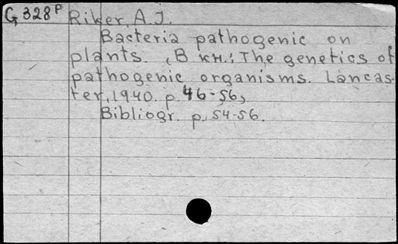 G328ᵖ Riker, A.J.
Bacteria pathogenic on
plants. (В кн.: The genetics of
pathogenic organisms. Lancas-
ter, 1940. p. 46-56)
Bibliogr. p. 54-56.